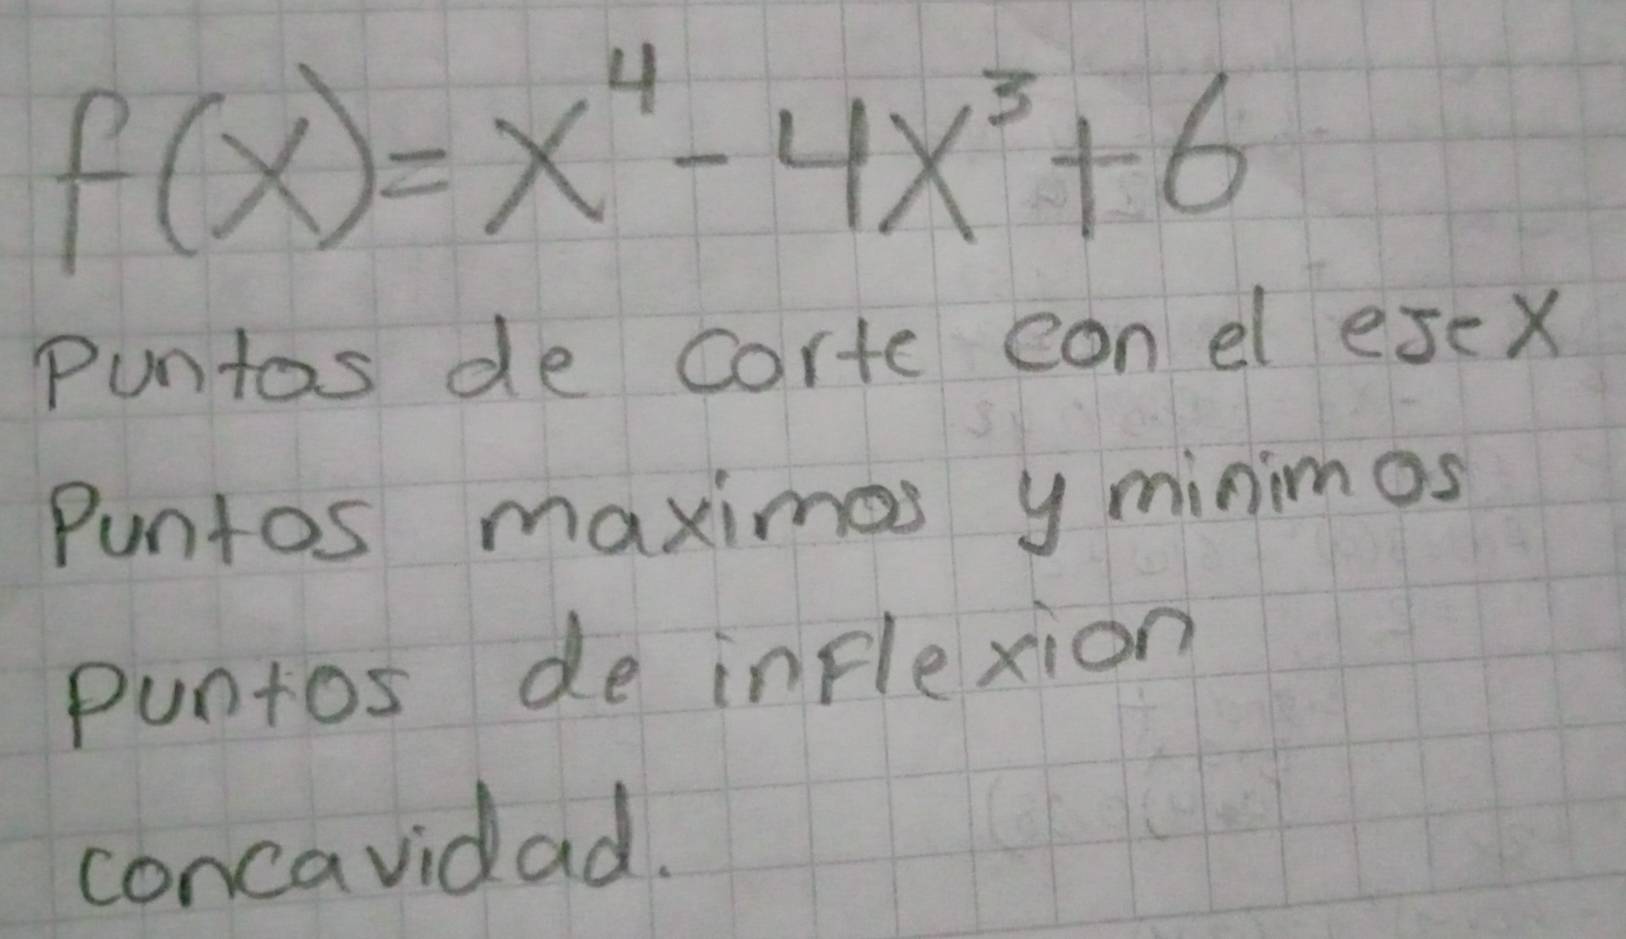 f(x)= x⁴ - 4x³ + 6
Puntos de corte con el eje x
Puntos maximos y minimos
puntos de inflexion
concavidad.